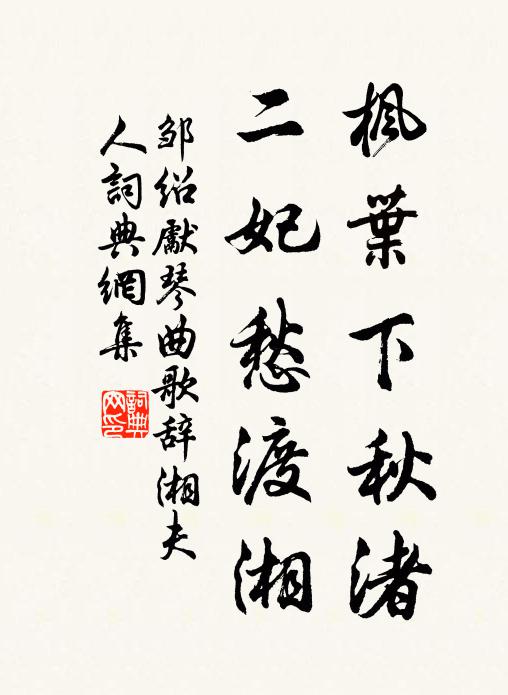 楓葉下秋渚
二妃愁渡湘
邹绍獻琴曲歌辞湘夫
人詞典網集
詞典
网印